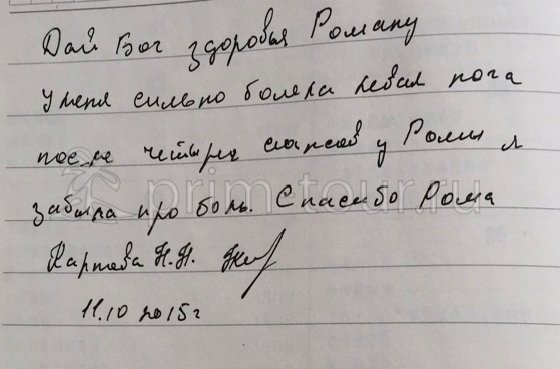 Дай Бог здоровья Роману
У меня сильно болела левая нога
после четырех сеансов у Ромы я
забыла про боль. Спасибо Рома
Карпова Н.Н.
11.10 2015 г
prim-tour.ru